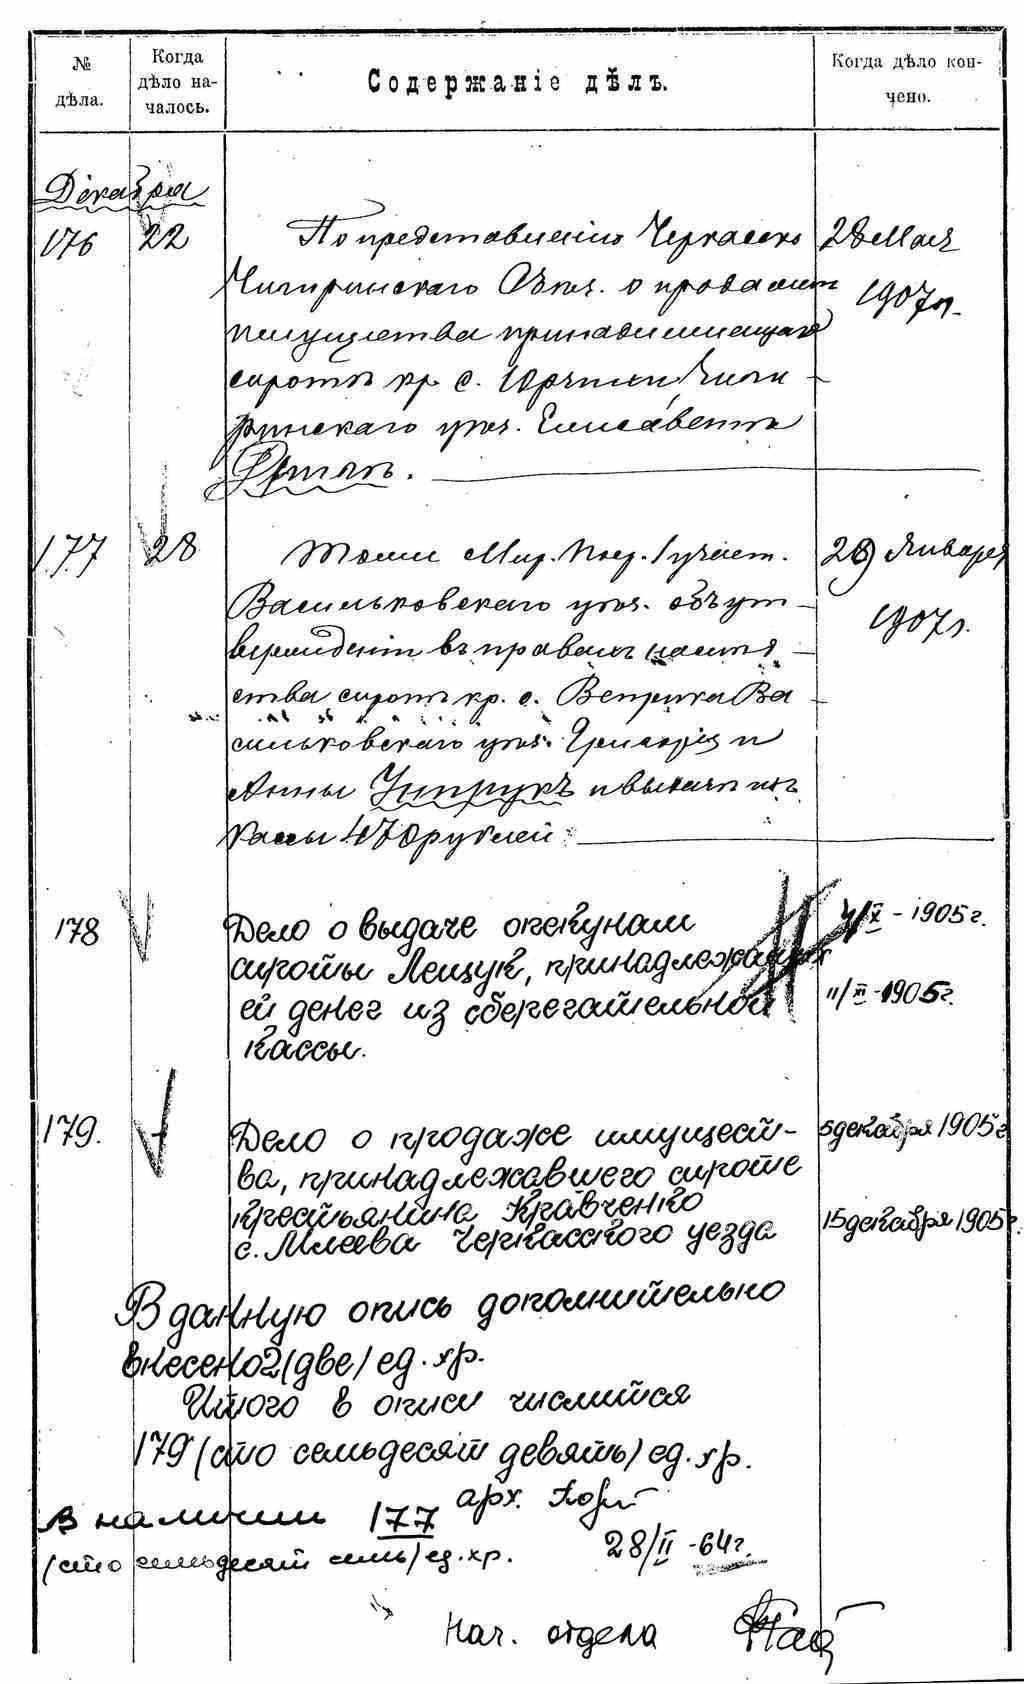 № дѣла.
Когда дѣло началось.
Содержаніе дѣлъ.
Когда дѣло кончено.
Декабря
176 22 По представленію Черкасско 28 Мая
Чигиринскаго Съѣз. о продажѣ 1907 г.
имущества принадлежащаго
сиротѣ кр. с. Юрчихи Чиги
ринскаго уѣз. Елисаветѣ
177 28 Тоже Мир. Поср. 1 участ. 29 Января
Васильковскаго уѣз. объ ут 1907 г.
вержденіи въ правахъ наслѣд
ства сиротъ кр. с. Веприка Ва
сильковскаго уѣз. Григорія и
Анны и выдачи изъ
кассы 470 рублей
178 Дело о выдаче опекунам 4/X - 1905 г.
сироты Лещук, принадлежащих
ей денег из сберегательной 11/XI - 1905 г.
кассы.
179. Дело о продаже имущест- 5 декабря 1905 г
ва, принадлежавшего сироте
крестьянина Кравченко 15 декабря 1905 г.
с. Млеева Черкасского уезда
В данную опись дополнительно
внесено 2 (две) ед. хр.
Итого в описи числится
179 (сто семьдесят девять) ед. хр.
арх.
В наличии 177
(сто семьдесят семь) ед. хр. 28/II - 64 г.
Нач. отдела